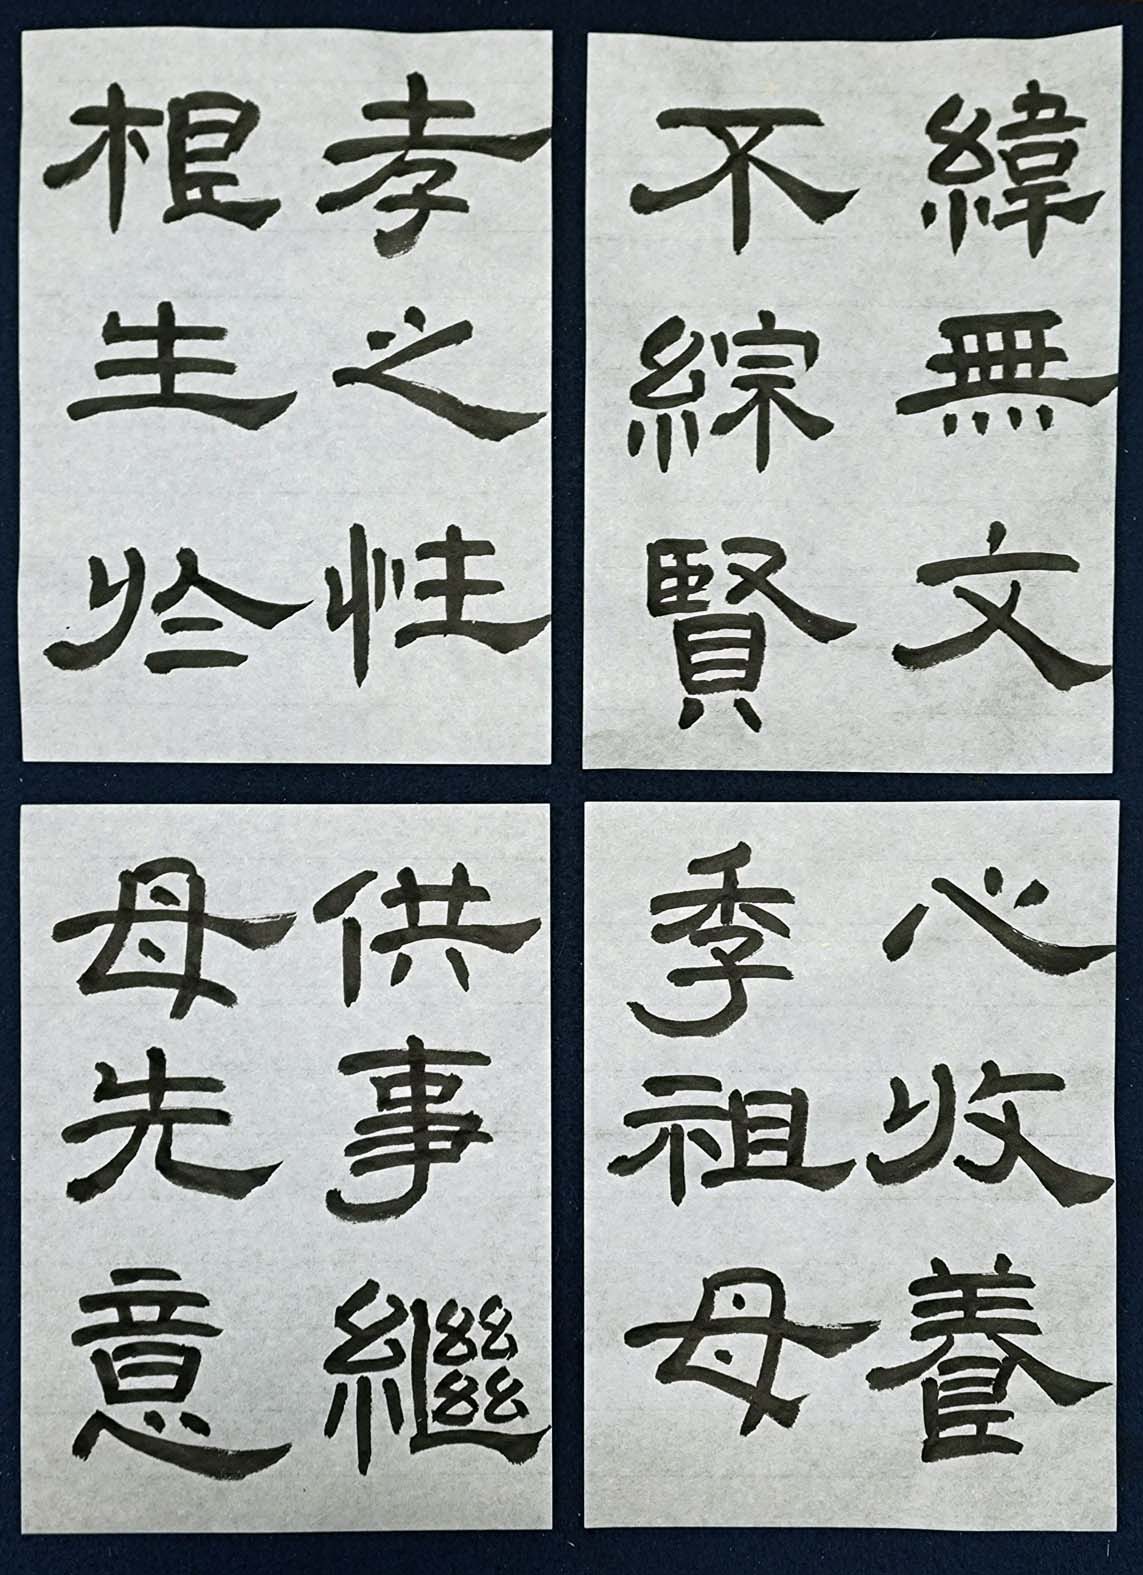 緯無文
不綜賢
孝之性
根生於
心收養
季祖母
供事繼
母先意